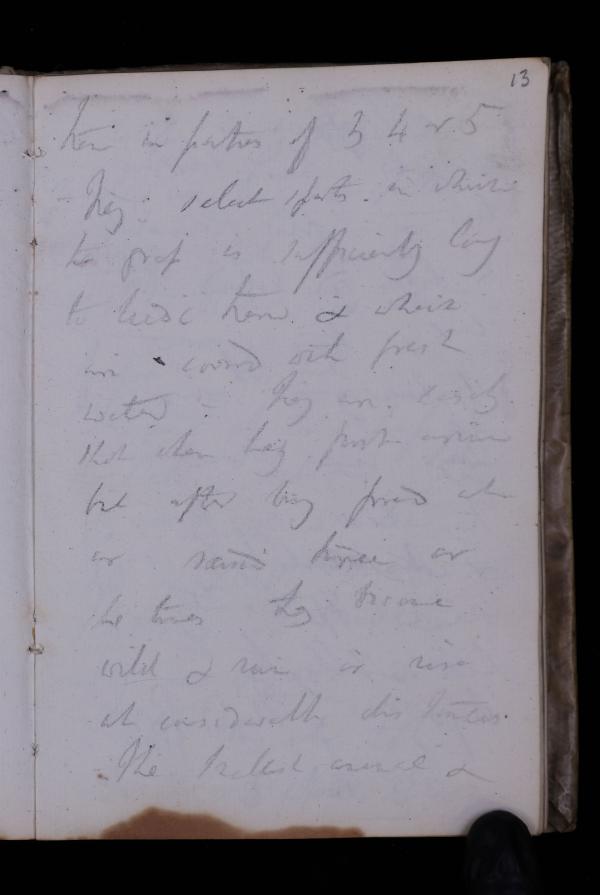 13
them in parties of 3 4 or 5
- They select spots in which
the grass is sufficiently long
to hide them & which
are covered with fresh
water - They are easily
shot when they first arrive
but after being fired at
or raised twice or
the times they become
wild & run or rise
at considerable distances.
- The